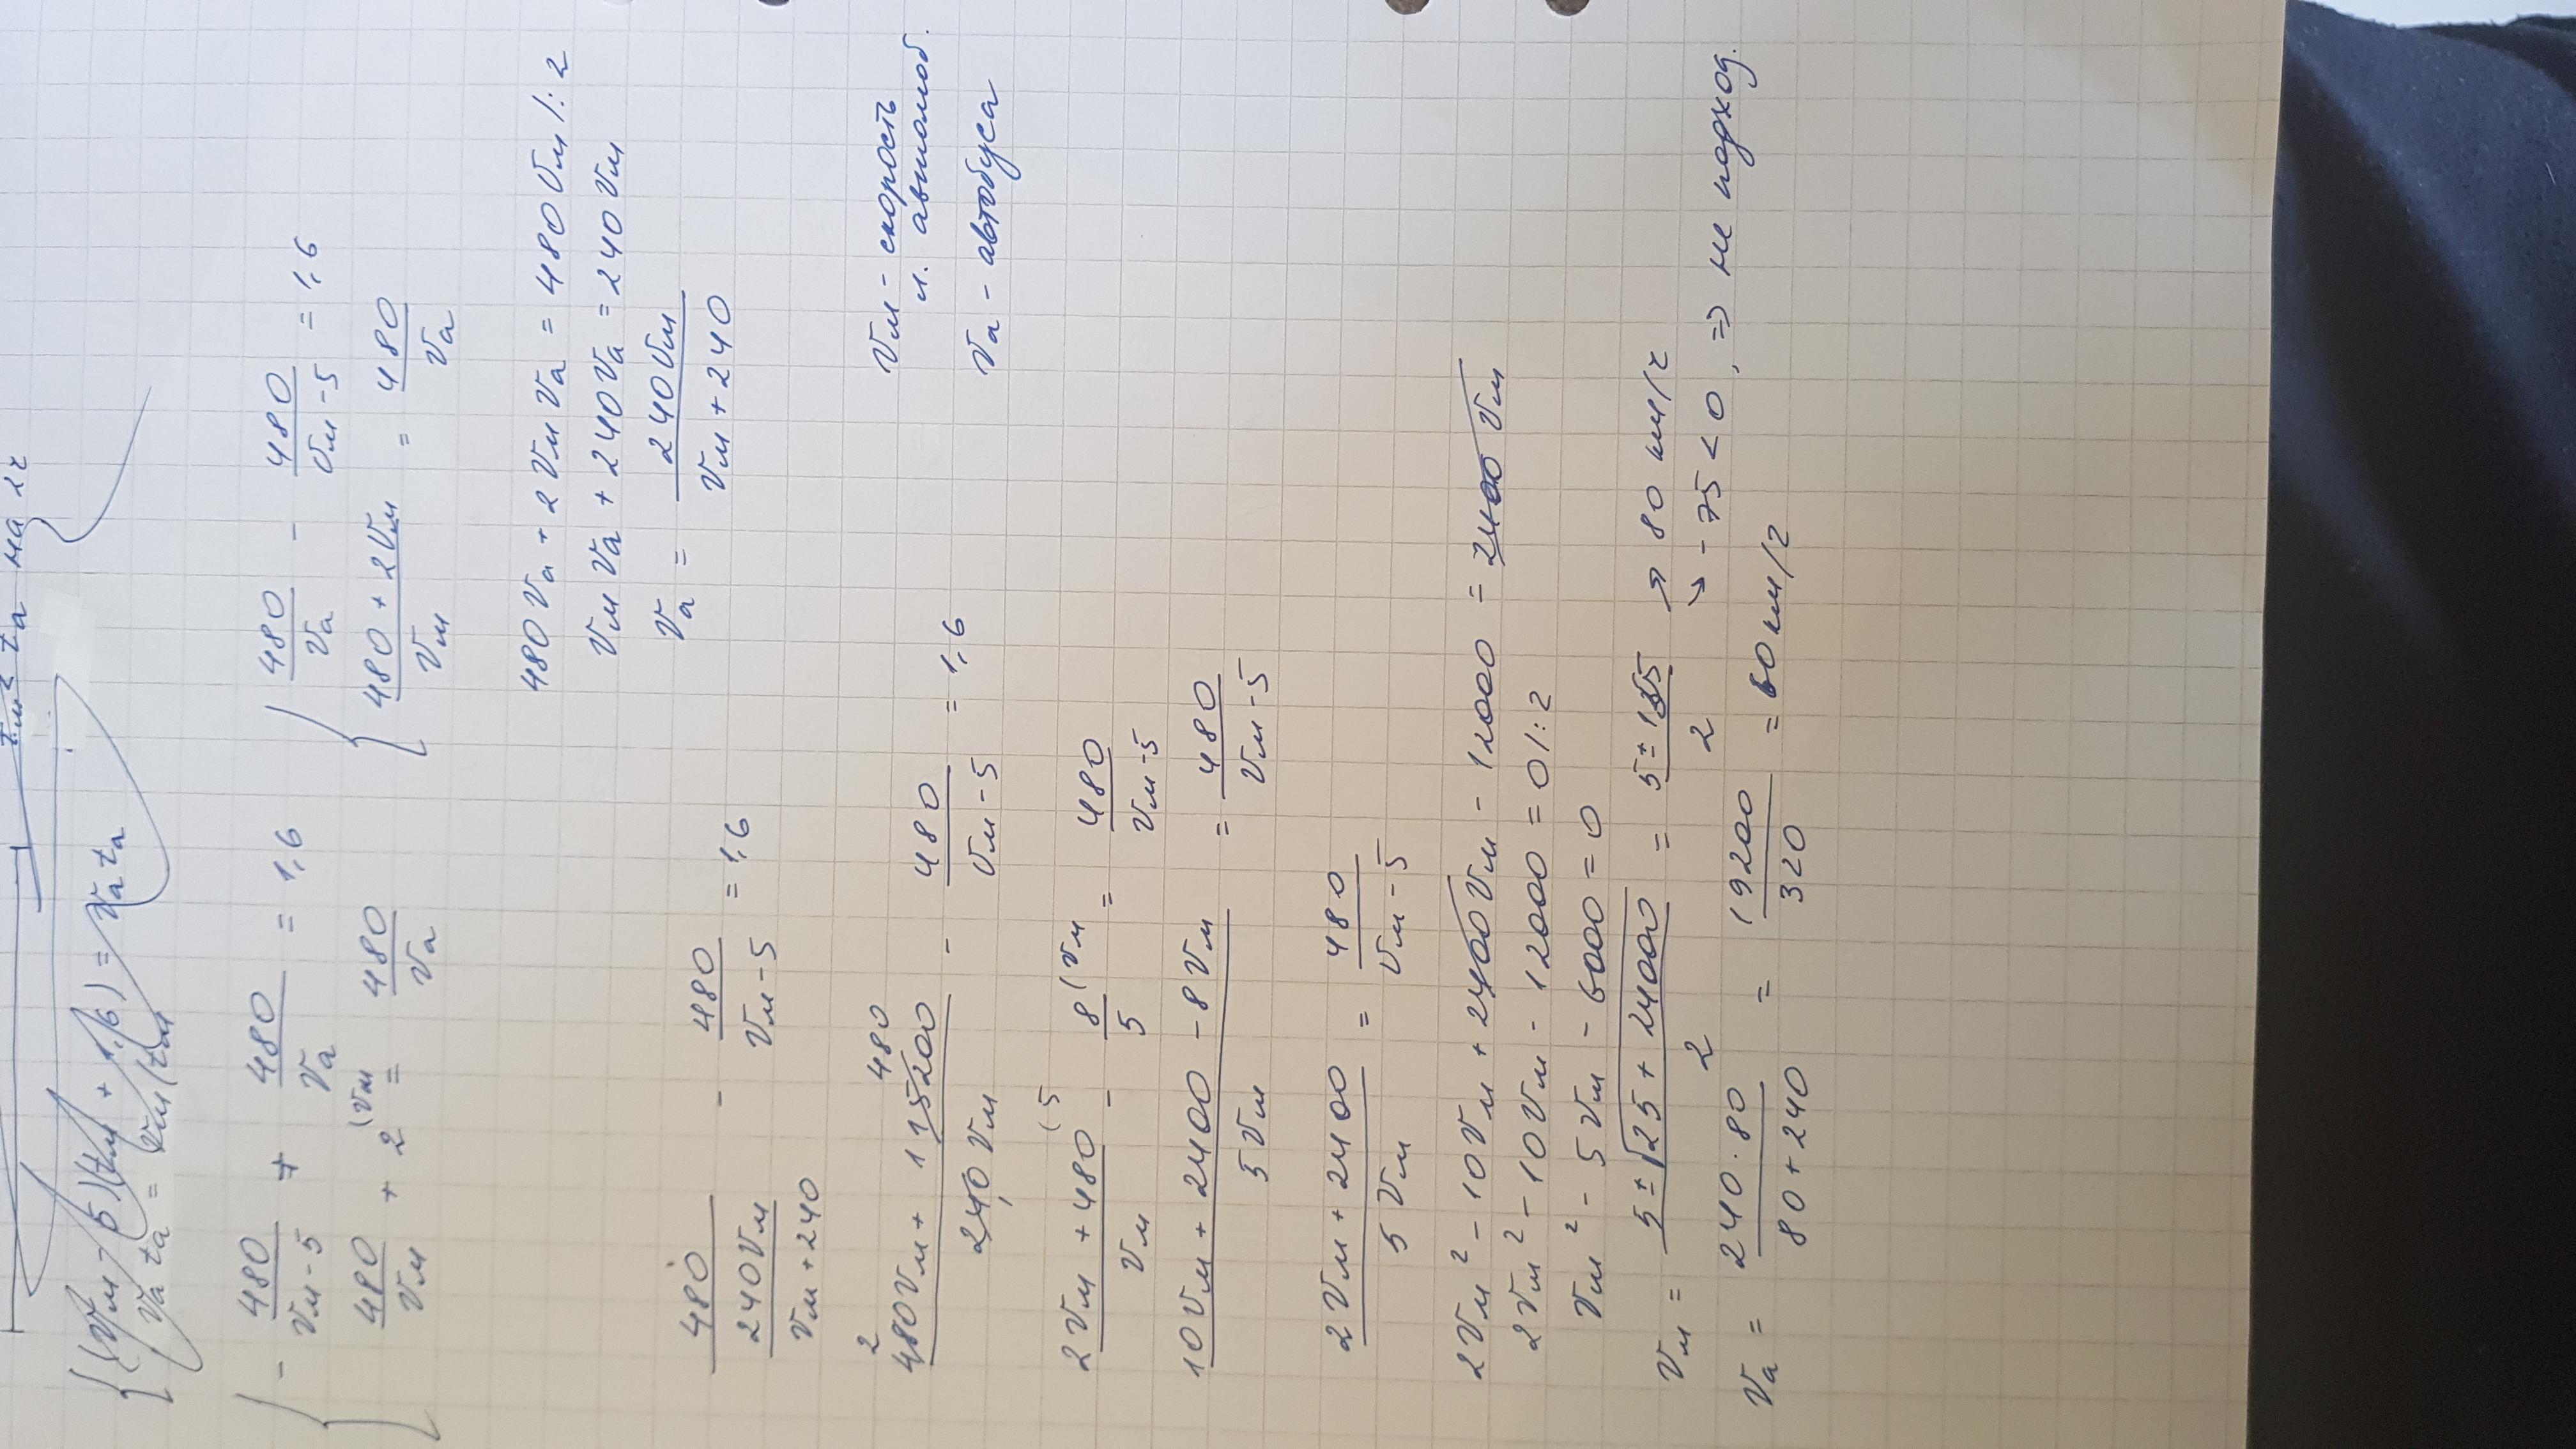 tм² ta на 2ч
{(Vм - 5)(tм + 1,6) = Va ta
Va ta = Vм(tм
{ - 480/(Vм - 5) + 480/Va = 1,6
480/Vм + 2 (Vм = 480/Va
{ 480/Va - 480/(Vм - 5) = 1,6
(480 + 2Vм)/Vм = 480/Va
480 Va + 2 Vм Va = 480 Vм /: 2
Vм Va + 240 Va = 240 Vм
Va = 240 Vм/(Vм + 240)
480/(240 Vм/(Vм + 240)) - 480/(Vм - 5) = 1,6
Vм - скорость
л. автомоб.
Va - автобуса
2 480
(480 Vм + 115200)/(240 Vм) - 480/(Vм - 5) = 1,6
(2 Vм + 480 (5)/Vм - 8 (Vм/5 = 480/(Vм - 5)
(10 Vм + 2400 - 8 Vм)/(5 Vм) = 480/(Vм - 5)
(2 Vм + 2400)/(5 Vм) = 480/(Vм - 5)
2 Vм² - 10 Vм + 2400 Vм - 12000 = 2400 Vм
2 Vм² - 10 Vм - 12000 = 0 /: 2
Vм² - 5 Vм - 6000 = 0
Vм = (5 ± √(25 + 24000))/2 = (5 ± 155)/2 ↗ 80 км/ч
↘ - 75 < 0, ⇒ не подход.
Va = (240 · 80)/(80 + 240) = 19200/320 = 60 км/ч